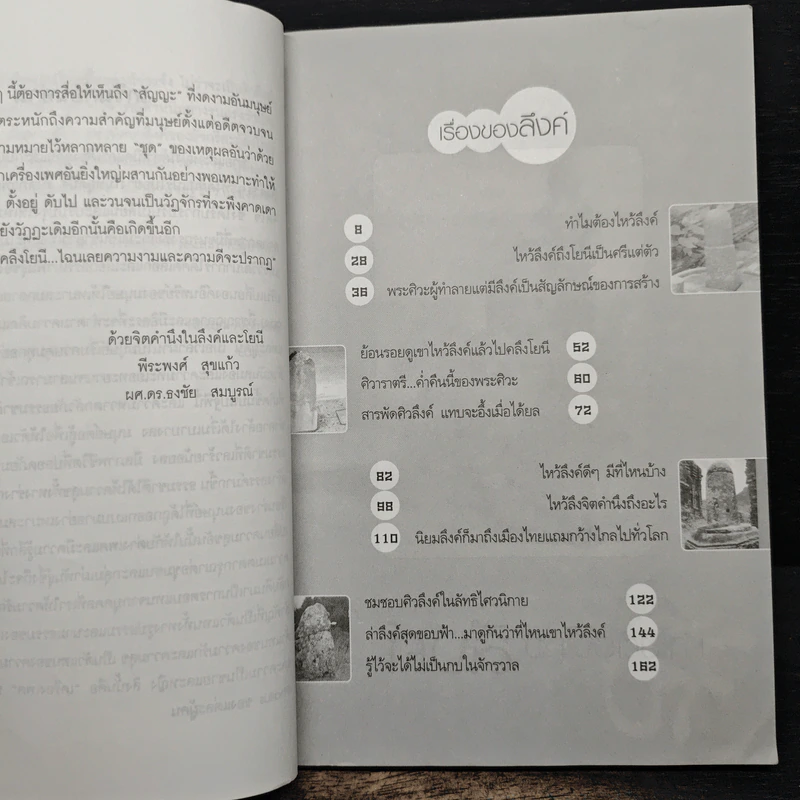 ๆ นี้ต้องการสื่อให้เห็นถึง "สัญญะ" ที่งดงามอันมนุษย์
ตระหนักถึงความสำคัญที่มนุษย์ตั้งแต่อดีตจวบจน
ามหมายไว้หลากหลาย "ชุด" ของเหตุผลอันว่าด้วย
กเครื่องเพศอันยิ่งใหญ่ผสานกันอย่างพอเหมาะทำให้
ตั้งอยู่ ดับไป และวนจนเป็นวัฏจักรที่จะพึงคาดเดา
ยังวัฏฏะเดิมอีกนั้นคือเกิดขึ้นอีก
คลึงโยนี...ไฉนเลยความงามและความดีจะปรากฏ"
ด้วยจิตคำนึงในลึงค์และโยนี
พีระพงศ์ สุขแก้ว
ผศ.ดร.ธงชัย สมบูรณ์
เรื่องของลึงค์
8 ทำไมต้องไหว้ลึงค์
28 ไหว้ลึงค์ถึงโยนีเป็นศรีแต่ตัว
36 พระศิวะผู้ทำลายแต่มีลึงค์เป็นสัญลักษณ์ของการสร้าง
ย้อนรอยดูเขาไหว้ลึงค์แล้วไปคลึงโยนี 52
ศิวาราตรี...ค่ำคืนนี้ของพระศิวะ 60
สารพัดศิวลึงค์ แทบจะอึ้งเมื่อได้ยล 72
82 ไหว้ลึงค์ดีๆ มีที่ไหนบ้าง
98 ไหว้ลึงจิตคำนึงถึงอะไร
110 นิยมลึงค์ก็มาถึงเมืองไทยแถมกว้างไกลไปทั่วโลก
ชมชอบศิวลึงค์ในลัทธิไศวนิกาย 122
ล่าลึงค์สุดขอบฟ้า...มาดูกันว่าที่ไหนเขาไหว้ลึงค์ 144
รู้ไว้จะได้ไม่เป็นกบในจักรวาล 162